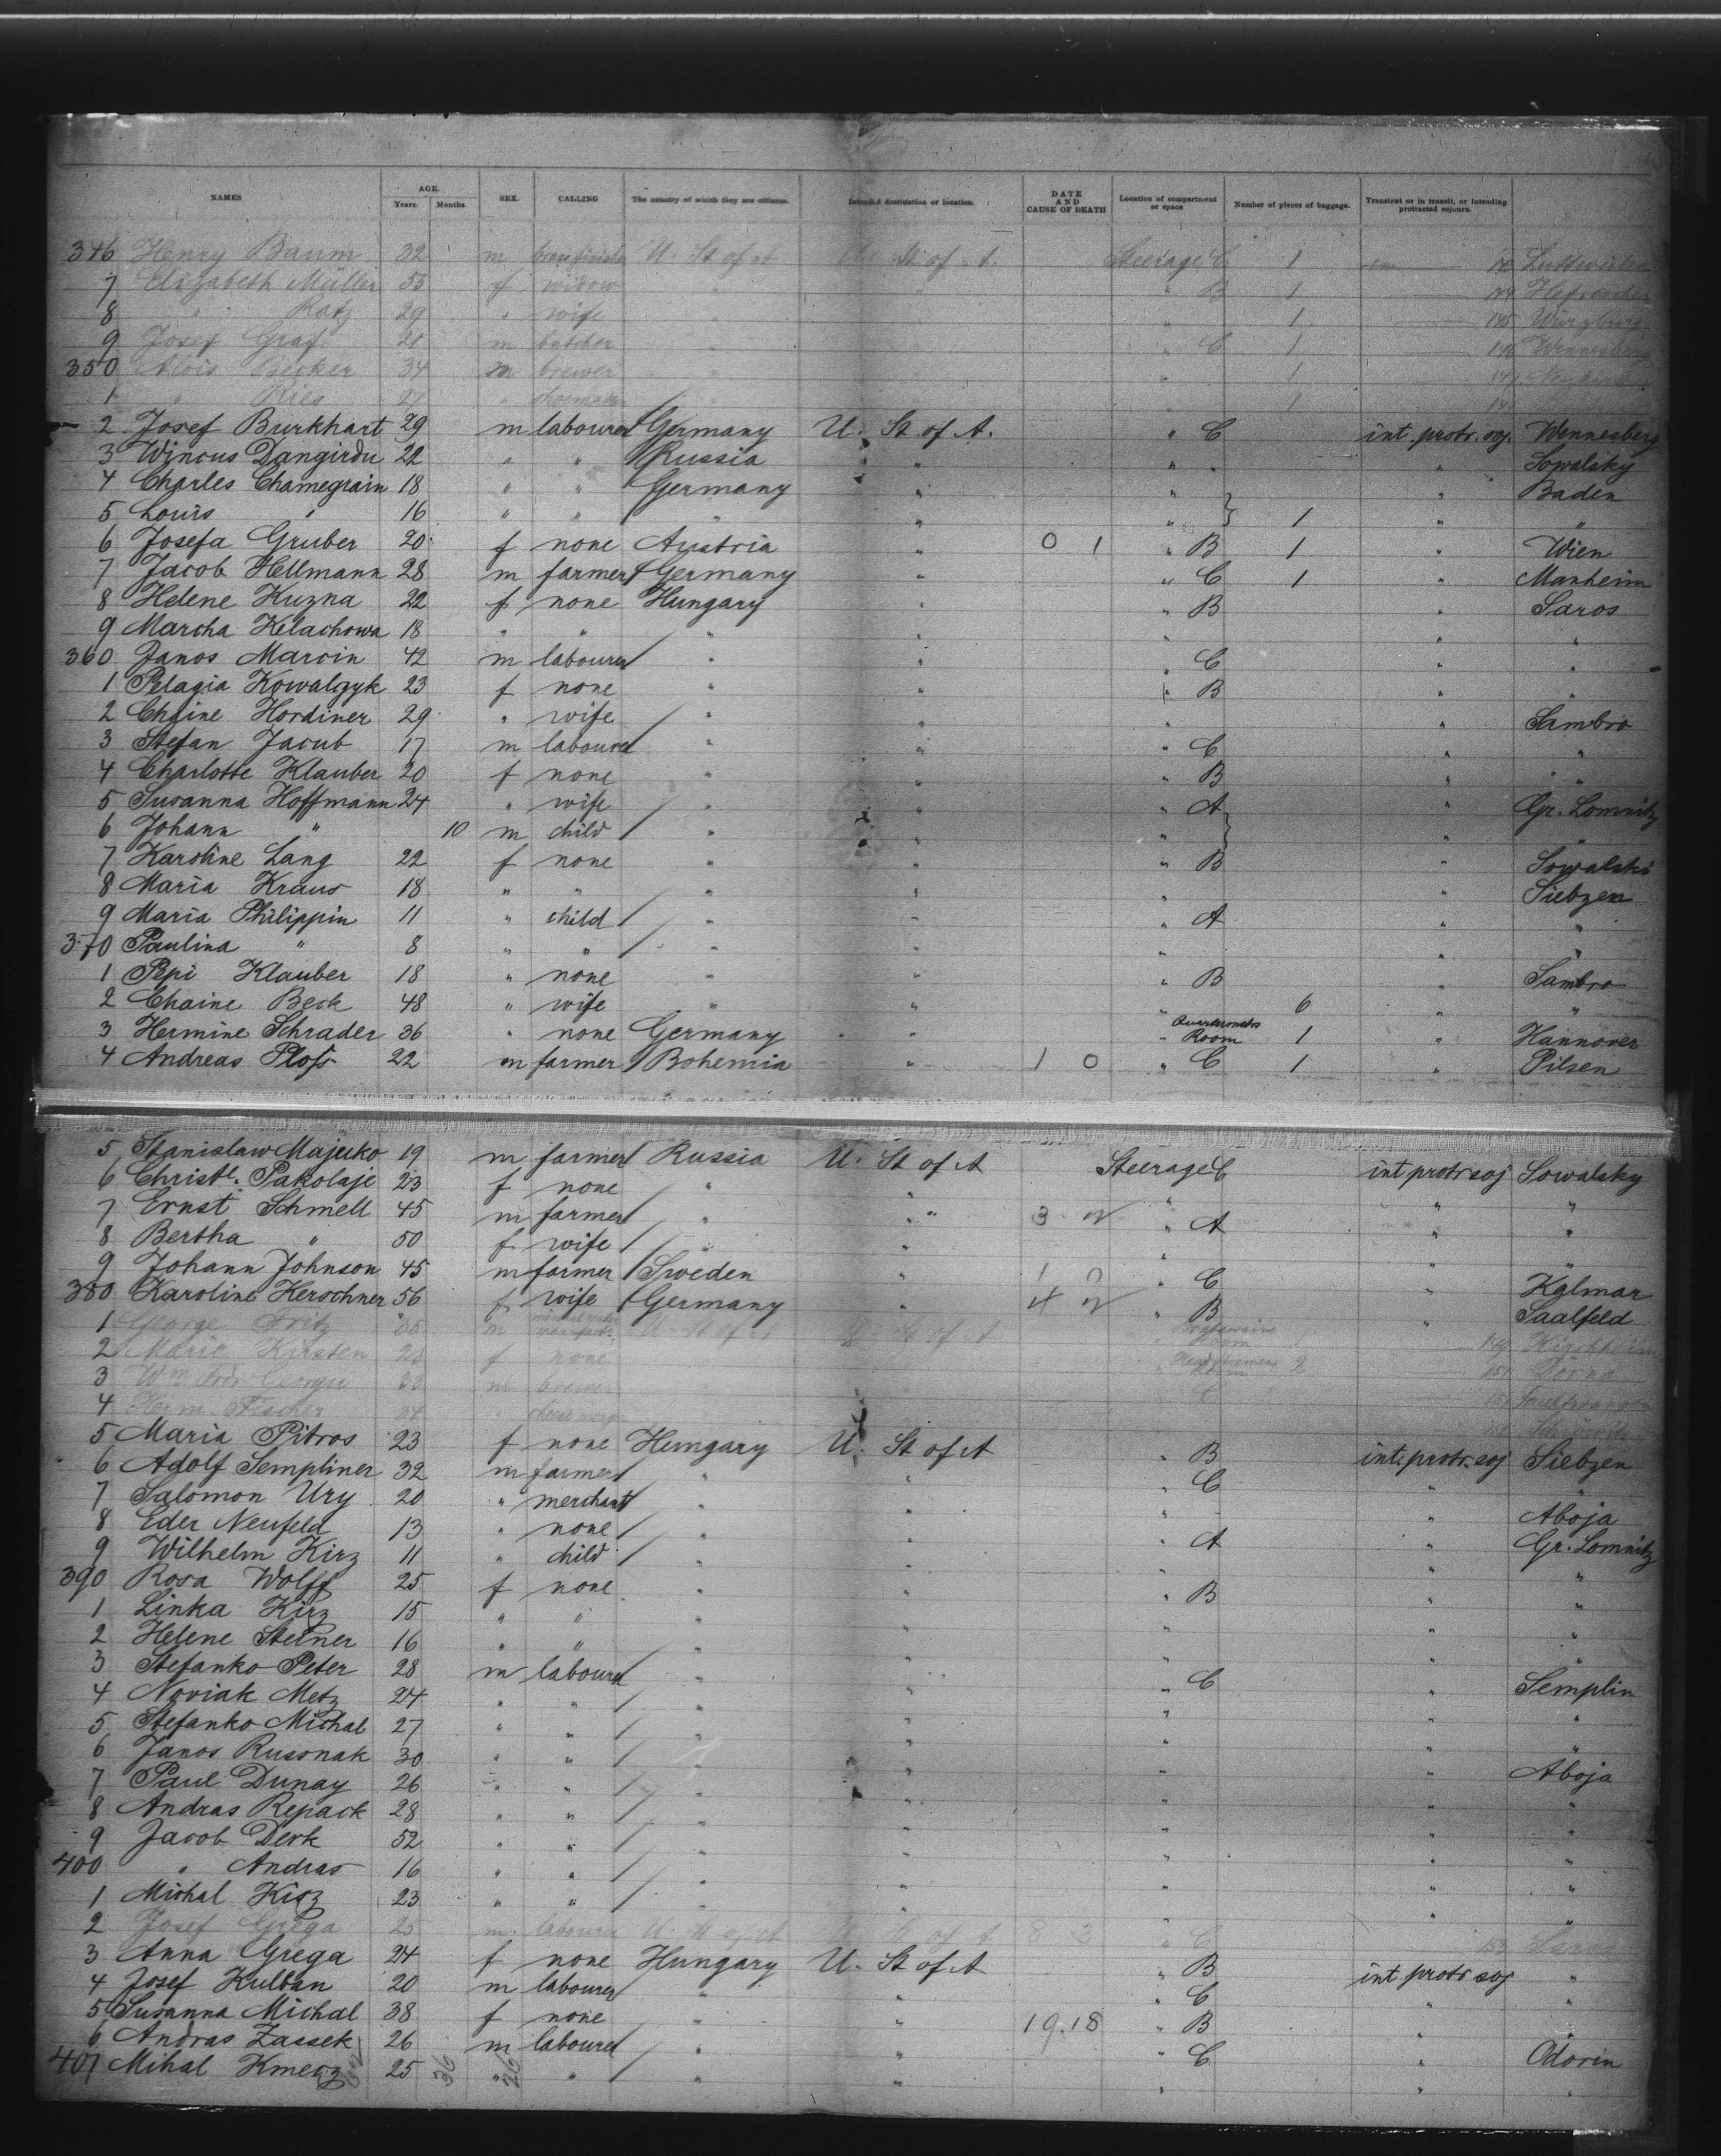 NAMES AGE. Years. Months. SEX. CALLING The country of which they are citizens. Intended destination or location. DATE AND CAUSE OF DEATH Location of compartment or space Number of pieces of baggage. Transient or in transit, or intending protracted sojourn.
346 Henry Baum 32 m U. St of A U. St of A. Steerage C 1
7 Elizabeth Müller 55 f widow " " " B 1
8 " Ratz 29 " wife " " " 1 145 Würzburg
9 Josef Graf 21 m butcher " " " C 1
350 Alois Becker 34 m brewer " 1
1 " Ries 27 " shoemaker 1
2 Josef Burkhart 29 m labourer Germany U. St of A. " C int. protr. soj. Wennesberg
3 Wincus Dangirdu 22 " " Russia " " " " Sowalsky
4 Charles Chamegrain 18 " " Germany " " " Baden
5 Louis " 16 " " " " " } 1 " "
6 Josefa Gruber 20 f none Austria " 0 1 " B 1 " Wien
7 Jacob Hellmann 28 m farmer Germany " " C 1 " Manheim
8 Helene Kuzna 22 f none Hungary " " B " Saros
9 Marcha Kelachowa 18 " " " " " " "
360 Janos Marcin 42 m labourer " " " C " "
1 Pelagia Kowalczyk 23 f none " " " B " "
2 Chaine Hordiner 29 " wife " " " " Sambro
3 Stefan Jacub 17 m labourer " " " C " "
4 Charlotte Klauber 20 f none " " " B " "
5 Susanna Hoffmann 24 " wife " " " A " Gr. Lomnitz
6 Johann " 10 m child " " " } "
7 Karoline Lang 22 f none " " " B " Sowalski
8 Maria Kraus 18 " " " " " " Siebzen
9 Maria Philippin 11 " child " " " A " "
370 Paulina " 8 " " " " " " "
1 Pepi Klauber 18 " none " " " B " Sambro
2 Chaine Beck 48 " wife " " " 6 " "
3 Hermine Schrader 36 " none Germany " " Room 1 " Hannover
4 Andreas Plofs 22 m farmer Bohemia " 1 0 " C 1 " Pilsen
5 Stanislaw Majeiko 19 m farmer Russia U. St of A Steerage C int protr soj Sowalsky
6 Christl. Pakolaje 23 f none " " " " "
7 Ernst Schmell 45 m farmer " " 3 2 " A " "
8 Bertha " 50 f wife " " " " "
9 Johann Johnson 45 m farmer Sweden " 1 0 " C " Kalmar
380 Karoline Herschner 56 f wife Germany " 4 2 " B Saalfeld
1 George Fritz m U. St of A St of A Room 1
2 Marie Kirsten f none 2
3 m brewer C
4 Herm. Fischer
5 Maria Pitros 23 f none Hungary U. St of A " B int. protr. soj Siebzen
6 Adolf Sempliner 32 m farmer " " " C " "
7 Salomon Ury 20 " merchant " " " " Aboja
8 Eder Neufeld 13 " none " " " A " Gr. Lomnitz
9 Wilhelm Kirz 11 " child " " " " "
390 Rosa Wolff 25 f none " " " B " "
1 Linka Kirz 15 " " " " " " "
2 Helene Steiner 16 " " " " " " "
3 Stefanko Peter 28 m labourer " " " C " Semplin
4 Noviak Metz 24 " " " " " " "
5 Stefanko Michal 27 " " " " " " "
6 Janos Russnak 30 " " " " " " Aboja
7 Paul Dunay 26 " " " " " " "
8 Andras Repack 28 " " " " " " "
9 Jacob Derk 52 " " " " " " "
400 " Andras 16 " " " " " " "
1 Michal Kisz 23 " " " " " " "
2 Josef Grega 25 m labourer U. St of A U. St of A 8 3 " C
3 Anna Grega 24 f none Hungary U. St of A " B int protr soj "
4 Josef Kulban 20 m labourer " " " C " "
5 Susanna Michal 38 f none " " 19.18 " B " "
6 Andras Zassek 26 m labourer " " " C " Odorin
407 Mihal Kmecz 25 36 " 26 " " " " " "